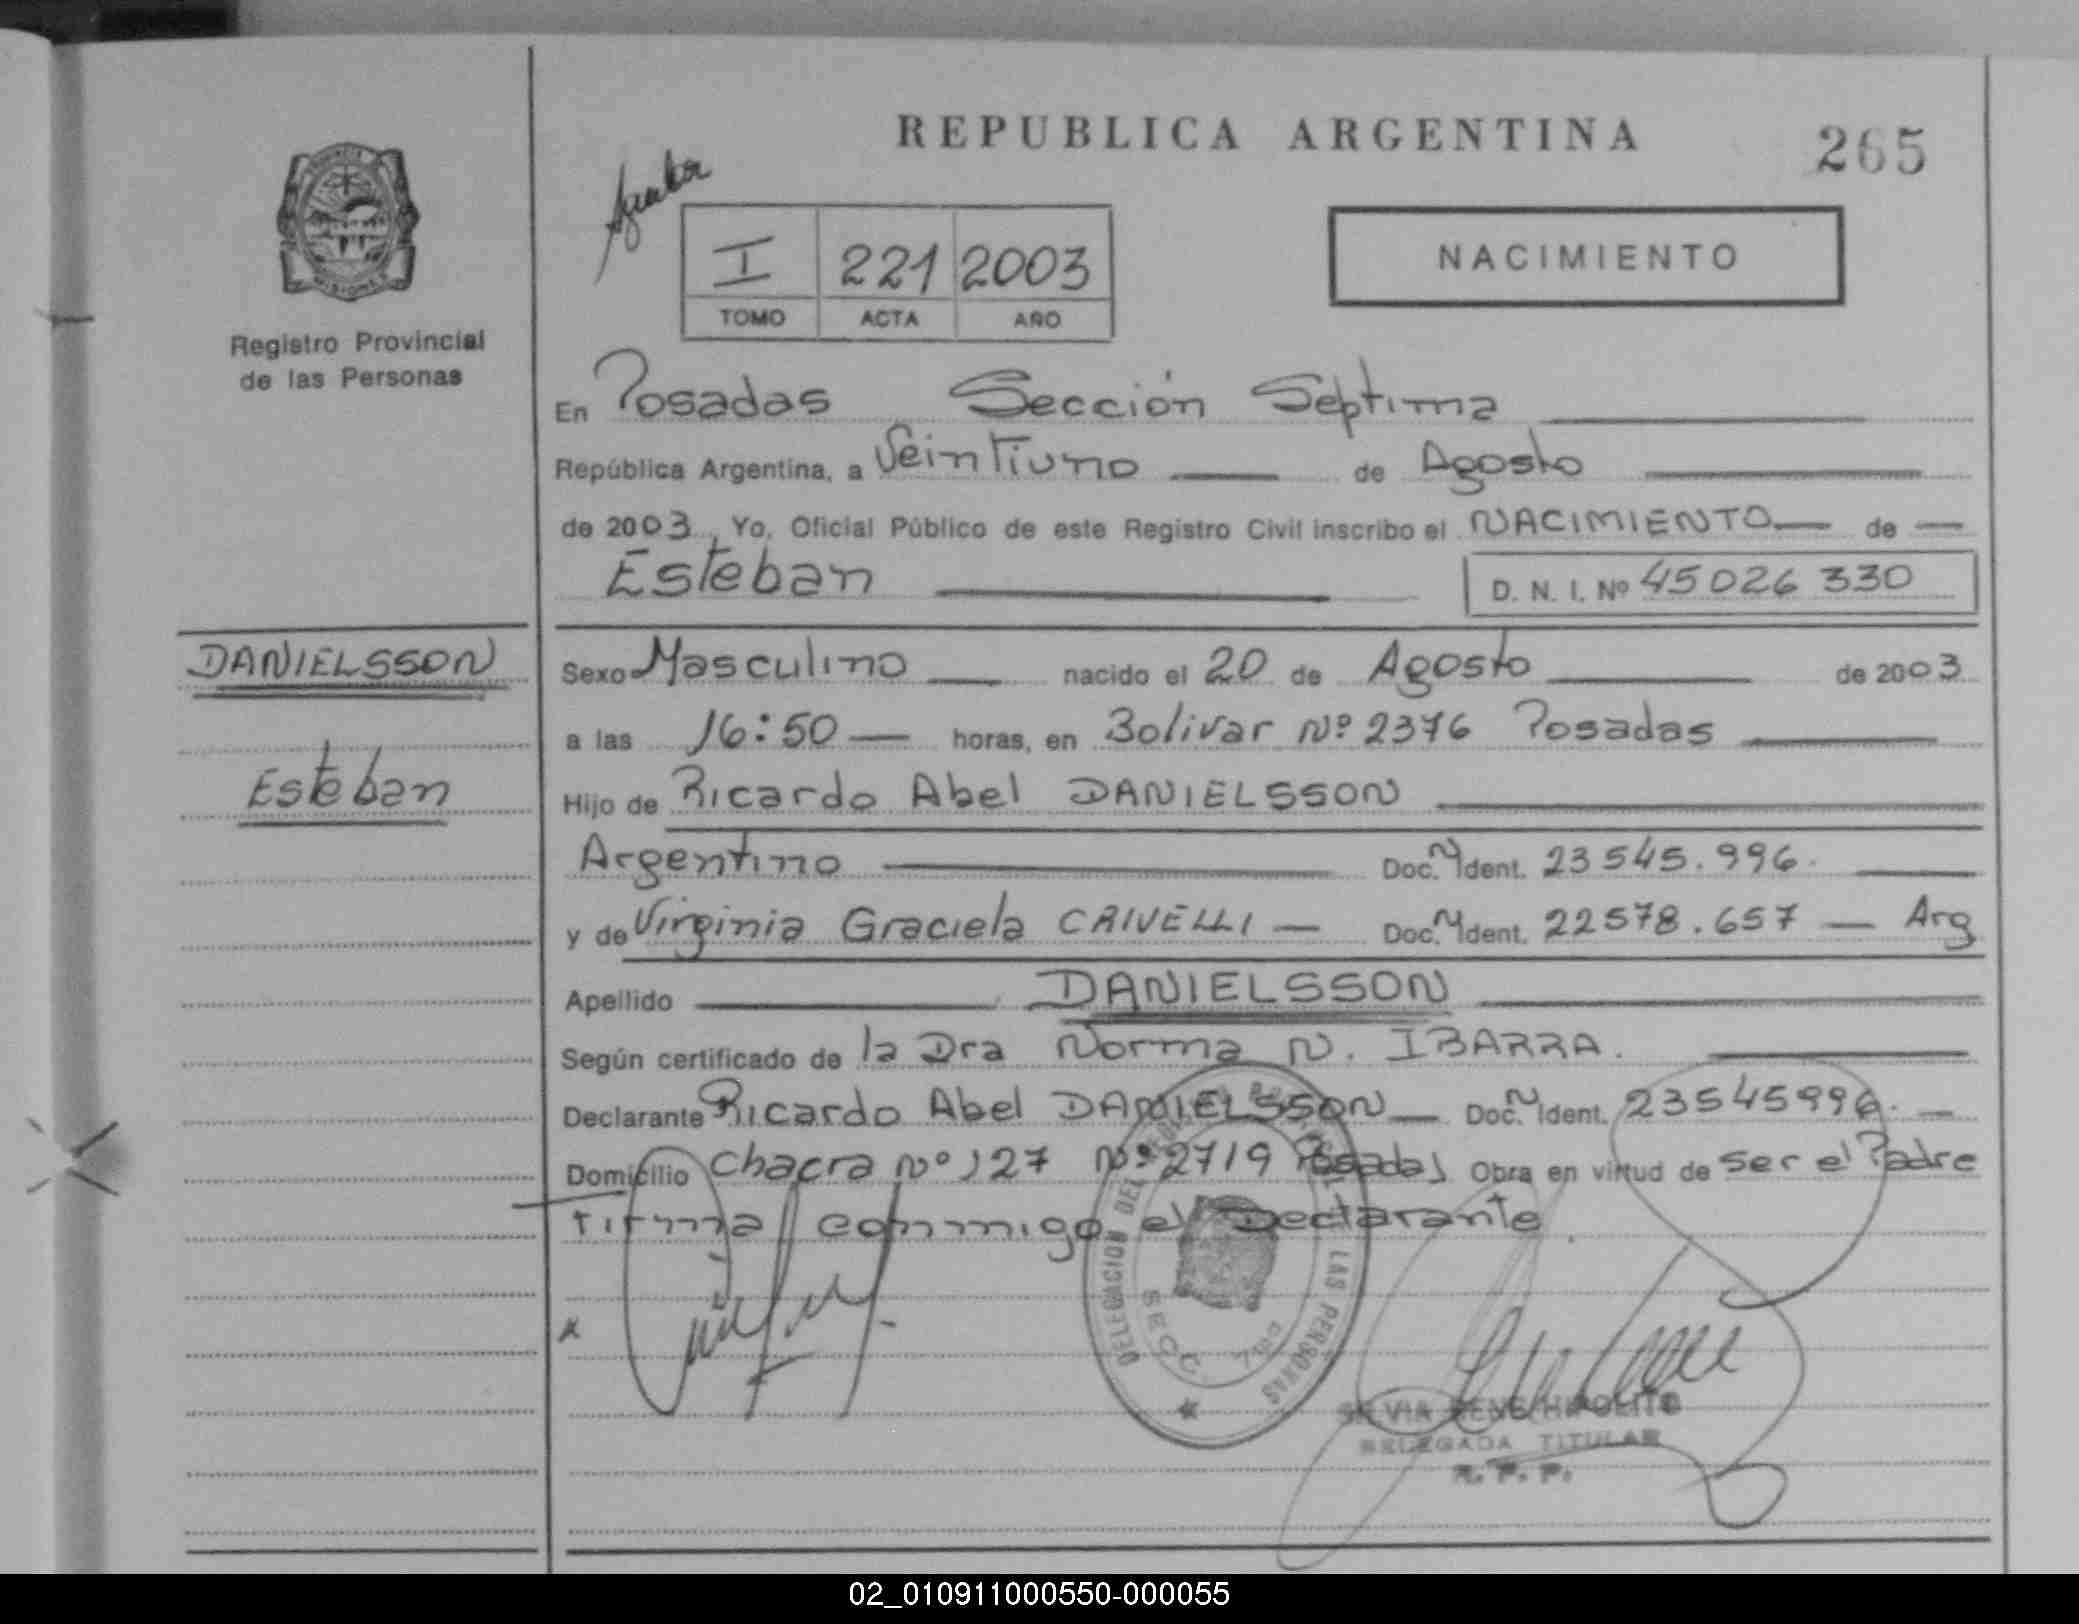 REPUBLICA ARGENTINA
265
I 221 2003
TOMO ACTA AÑO
NACIMIENTO
Registro Provincial
de las Personas
En Posadas Sección Septima
República Argentina, a Veintiuno de Agosto
de 2003 Yo, Oficial Público de este Registro Civil inscribo el NACIMIENTO de
Esteban D. N. I. Nº 45026 330
DANIELSSON
Esteban
Sexo Masculino nacido el 20 de Agosto de 2003
a las 16:50 horas, en Bolivar Nº 2376 Posadas
Hijo de Ricardo Abel DANIELSSON
Argentino Doc. N Ident. 23545.996.
y de Virginia Graciela CRIVELLI Doc. N Ident. 22578.657 Arg
Apellido DANIELSSON
Según certificado de la Dra Norma N. IBARRA.
Declarante Ricardo Abel DANIELSSON Doc. N Ident. 23545996.
Domicilio Chacra Nº 127 Nº 2719 Posadas Obra en virtud de ser el Padre
Firma conmigo el Declarante
DELEGACION DEL LAS PERSONAS
SECC 7ma
SILVIA HIPOLITO
DELEGADA TITULAR
R. P. P.
02_010911000550-000055